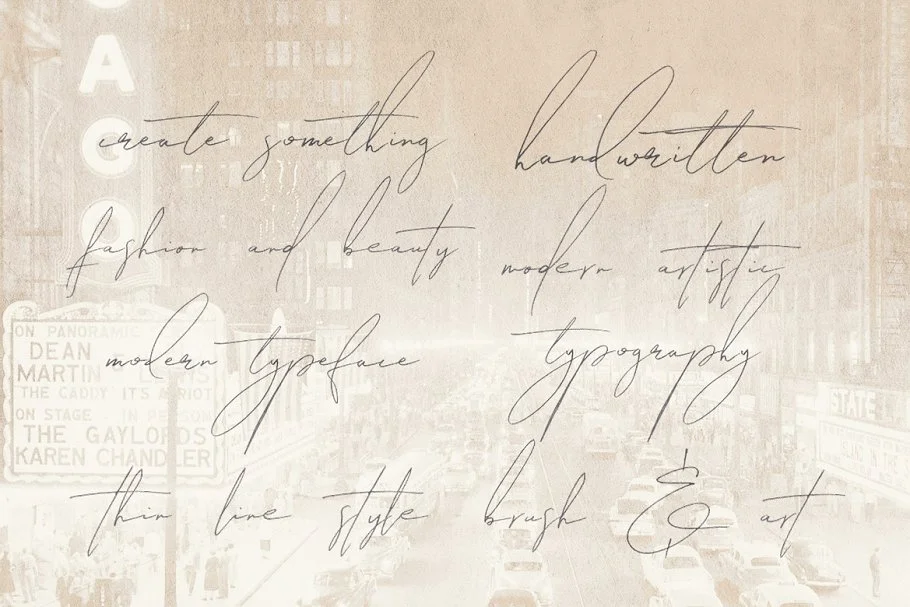 AGO
create something
handwritten
fashion and beauty
modern artistic
modern typeface
typography
thin line style brush & art
ON PANORAMIC
DEAN
MARTIN
THE CADDY IT'S A RIOT
ON STAGE IN PERSON
THE GAYLORDS
KAREN CHANDLER
STATE